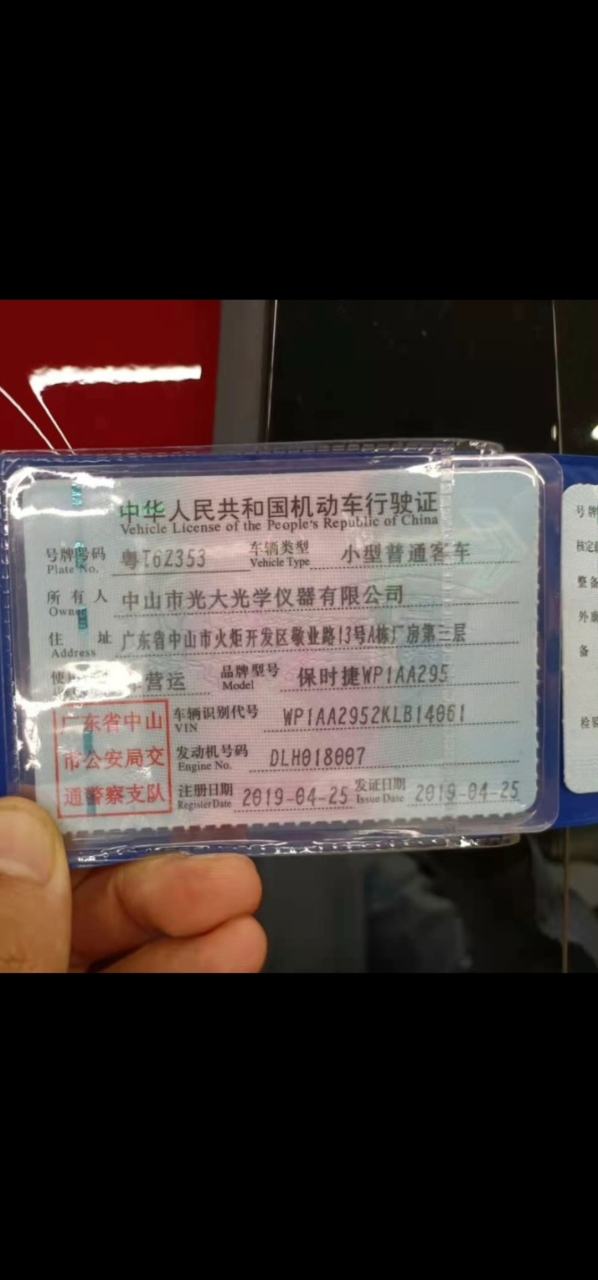 中华人民共和国机动车行驶证
Vehicle License of the People's Republic of China
号牌号码 粤T6Z353 车辆类型 小型普通客车
Plate No. Vehicle Type
所有人 中山市光大光学仪器有限公司
Owner
住址 广东省中山市火炬开发区敬业路13号A栋厂房第三层
Address
使 营运 品牌型号 保时捷WP1AA295
Model
广东省中山 车辆识别代号 WP1AA2952KLB14061
VIN
市公安局交 发动机号码 DLH018007
Engine No.
通警察支队 注册日期 2019-04-25 发证日期 2019-04-25
Register Date Issue Date
号牌
核定
整备
外廓
备
检验